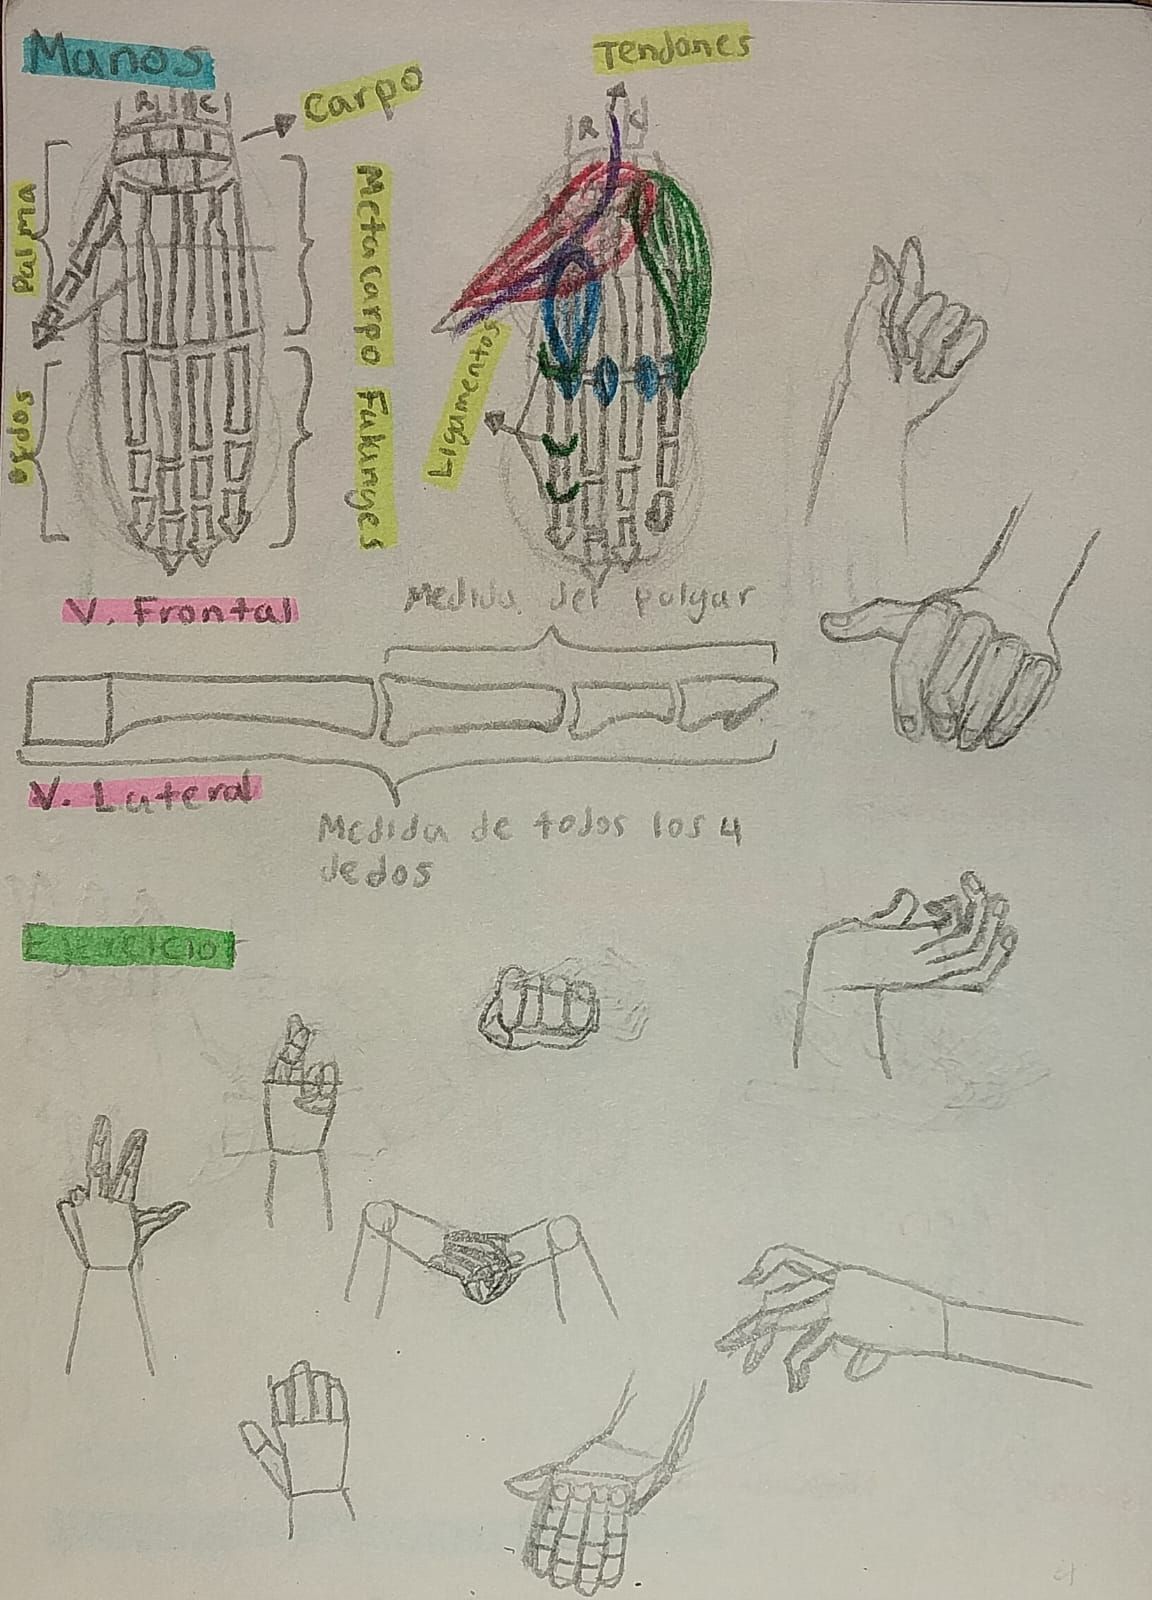 Manos
Tendones
Carpo
R C
R C
Palma
Metacarpo
Falanges
Ligamentos
Dedos
V. Frontal
Medida del pulgar
V. Lateral
Medida de todos los 4
dedos